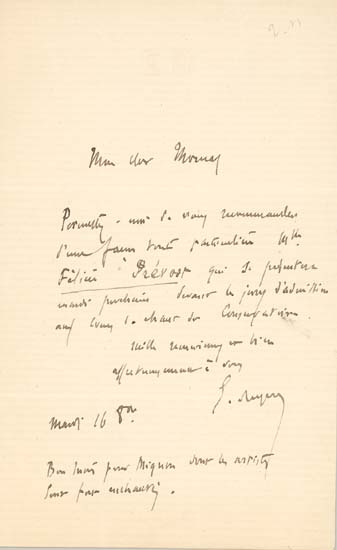 Mon cher Mornay
Permettez-moi de vous recommander
d'une façon toute particulière Mlle
Félicie Prévost qui se présentera
mardi prochain devant le jury d'admission
aux cours de chant du Conservatoire.
Mille remerciements et bien
affectueusement à vous
E. Reyer
Mardi 16 8bre
Bon succès pour Mignon dont les artistes
sont enchantés.